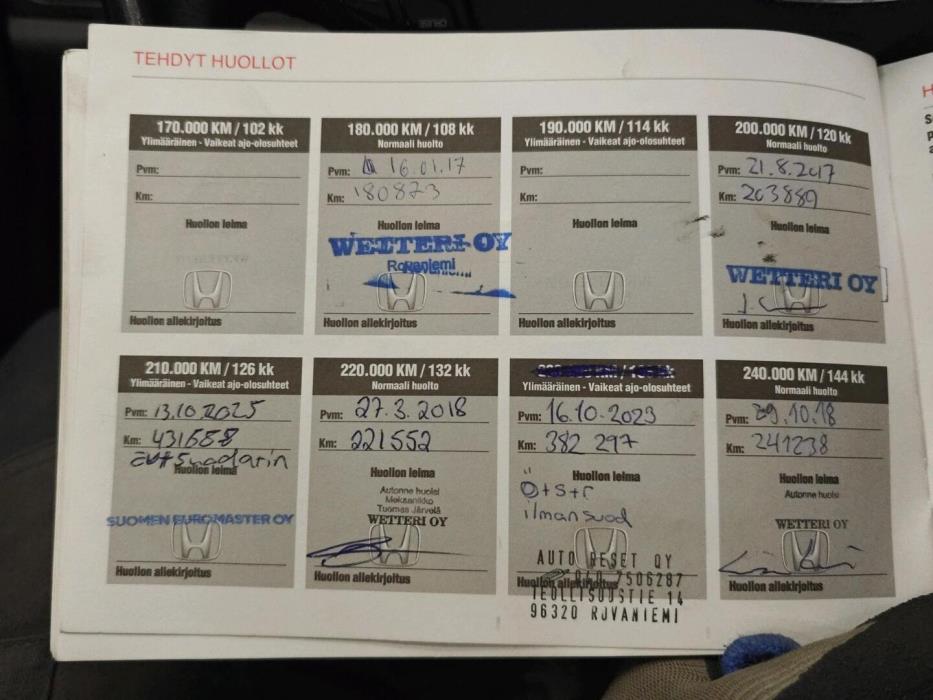 TEHDYT HUOLLOT
170.000 KM / 102 kk
Ylimääräinen - Vaikeat ajo-olosuhteet
Pvm:
Km:
Huollon leima
Huollon allekirjoitus
180.000 KM / 108 kk
Normaali huolto
Pvm: 16.01.17
Km: 180873
Huollon leima
WETTERI OY
Rovaniemi
Huollon allekirjoitus
190.000 KM / 114 kk
Ylimääräinen - Vaikeat ajo-olosuhteet
Pvm:
Km:
Huollon leima
Huollon allekirjoitus
200.000 KM / 120 kk
Normaali huolto
Pvm: 21.8.2017
Km: 203889
Huollon leima
WETTERI OY
Huollon allekirjoitus
210.000 KM / 126 kk
Ylimääräinen - Vaikeat ajo-olosuhteet
Pvm: 13.10.2025
Km: 431688
Huollon leima
SUOMEN EUROMASTER OY
Huollon allekirjoitus
220.000 KM / 132 kk
Normaali huolto
Pvm: 27.3.2018
Km: 221552
Huollon leima
Autonne huolsi
Mekaanikko
Tuomas Järvelä
WETTERI OY
Huollon allekirjoitus
Ylimääräinen - Vaikeat ajo-olosuhteet
Pvm: 16.10.2023
Km: 382 297
Huollon leima
Ö+S+r
ilmansuod
AUTO RESET OY
Huollon allekirjoitus
7506287
TEOLLISUUSTIE 14
96320 ROVANIEMI
240.000 KM / 144 kk
Normaali huolto
Pvm: 29.10.18
Km: 241238
Huollon leima
Autonne huolsi
WETTERI OY
Huollon allekirjoitus